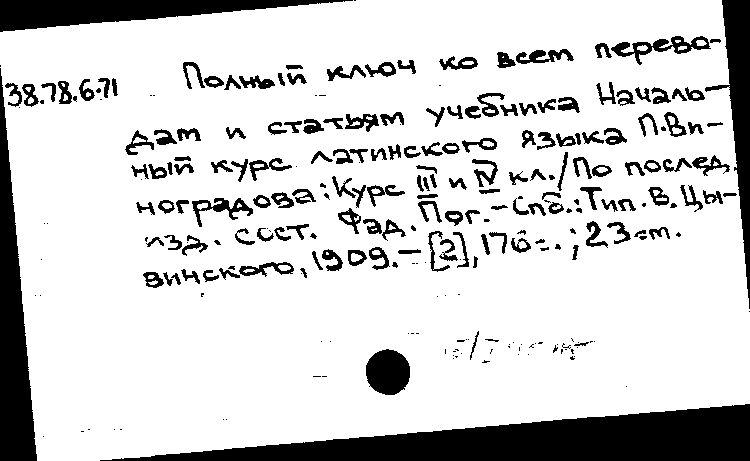 38.78.6.71
Полный ключ ко всем перево-
дам и статьям учебника Началь-
ный курс латинского языка П.Ви-
ноградова: Курс III и IV кл./По послед.
изд. сост. Фад. Пог. – Спб.: Тип. В. Цы-
винского, 1909. – [2], 176 с. ; 23 см.